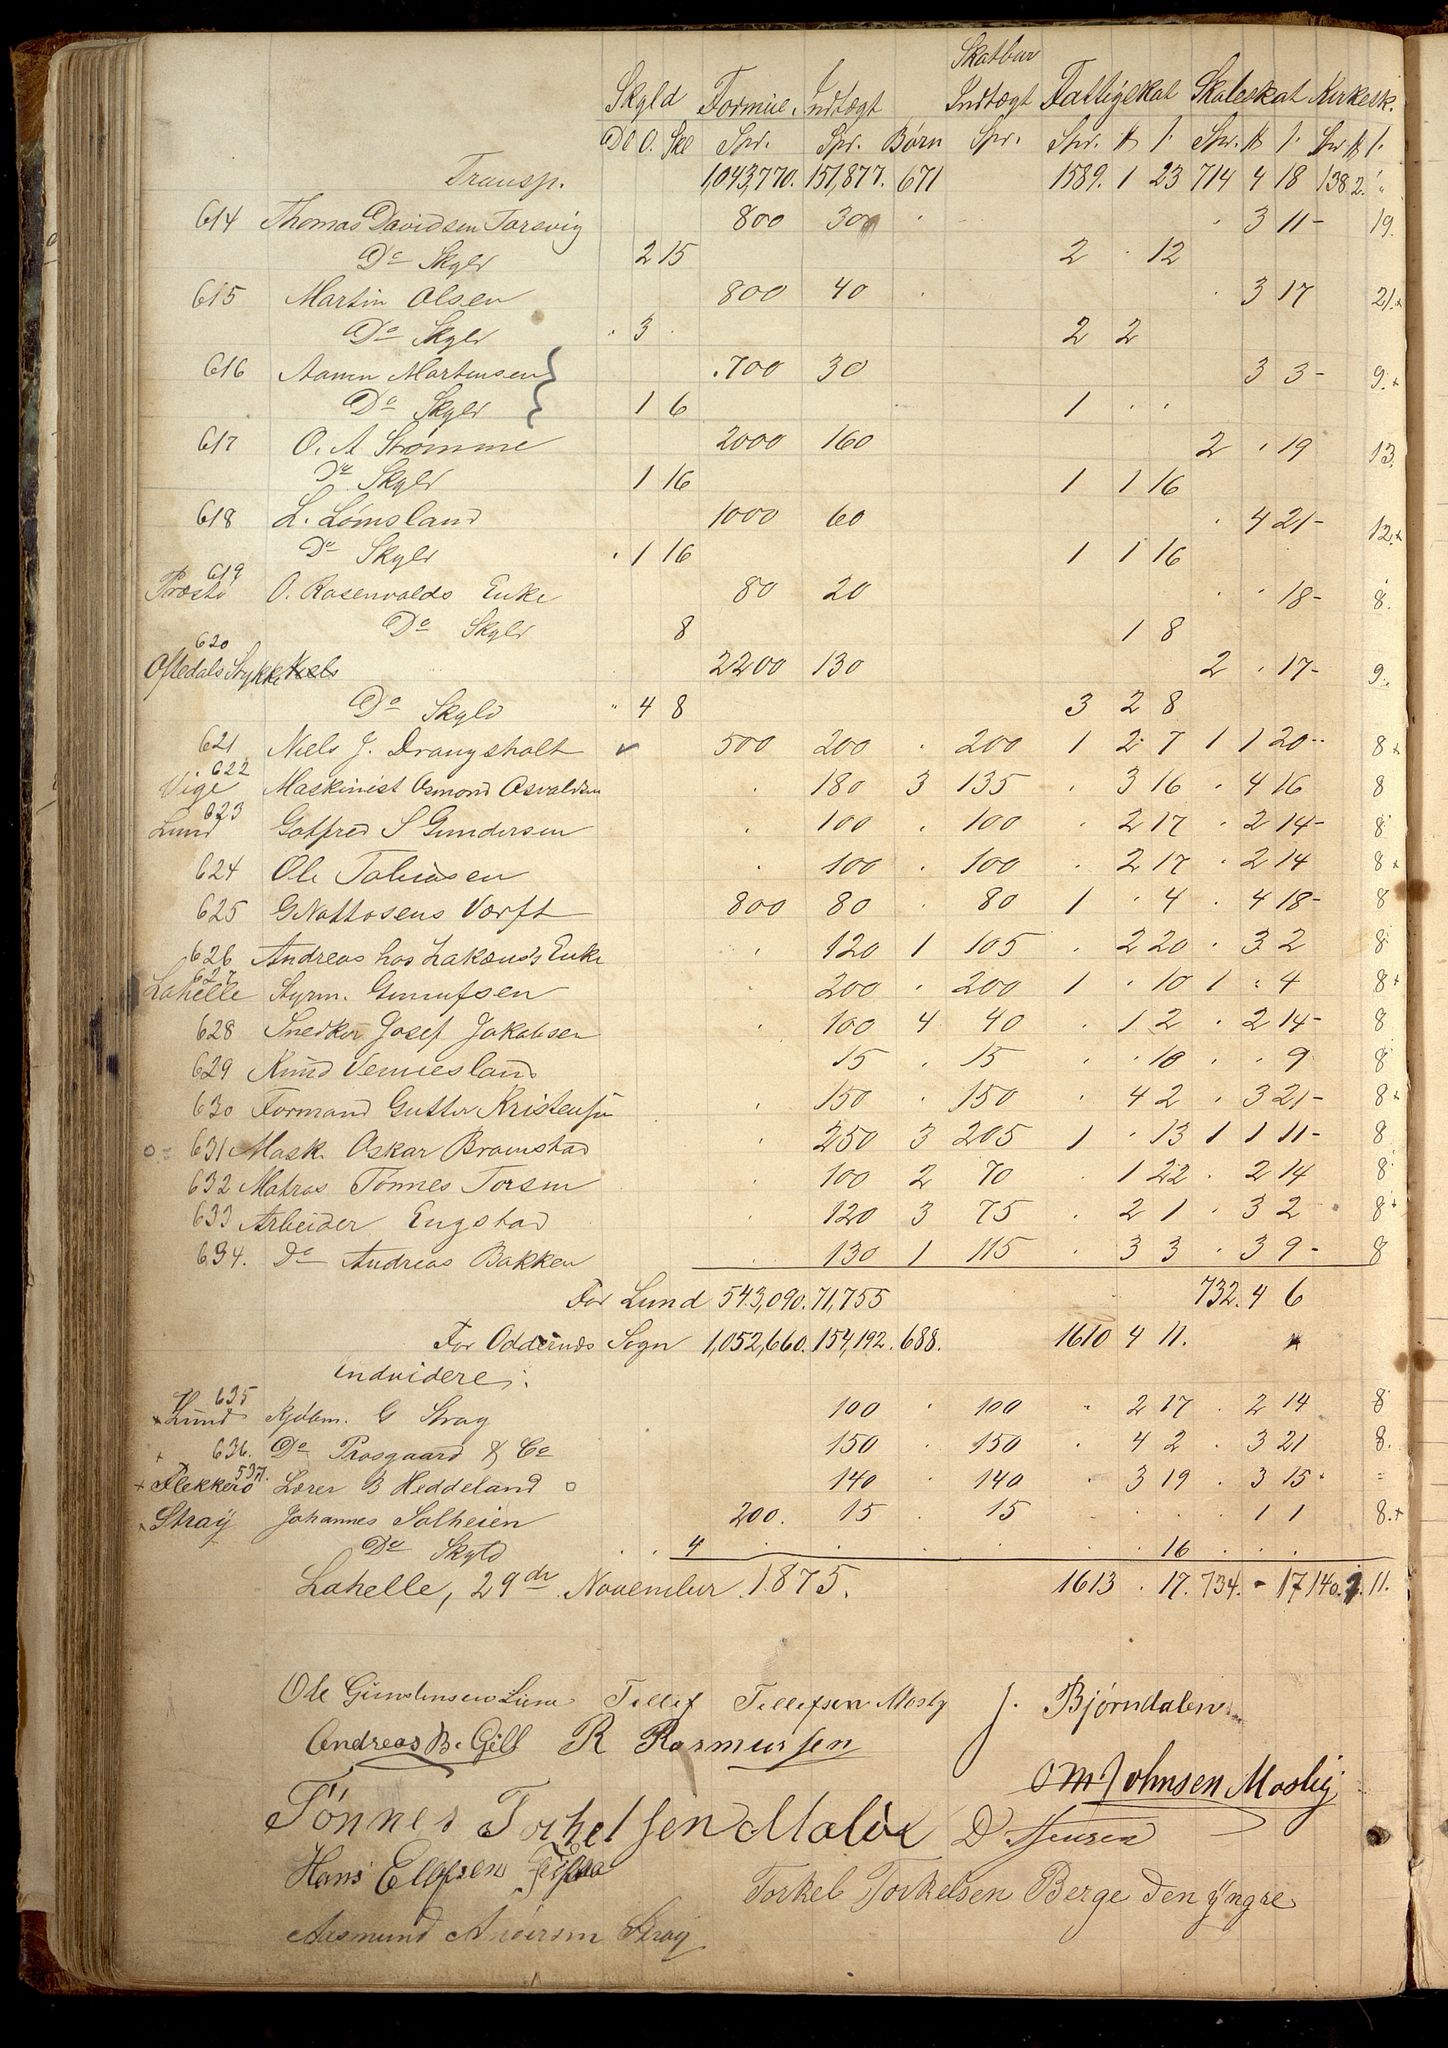 Skatbar
Skyld Formue Indtægt Indtægt Fattigskat Skoleskat Kirkesk.
D O. Skl Spr. Spr. Børn Spr. Spr. # ſ. Spr. # ſ. Spr # ſ.
Transp. 1,043,770. 151,877. 671 1589. 1 23 714 4 18 138. 2. "
614 Thomas Davidsen Torsvig 800 300 . . 3 11 - 19.
Do Skyld 2 15 2 . 12
615 Martin Olsen 800 40 . . 3 17 21. +
Do Skyld . 3 . 2 2
616 Aanen Martensen .700 30 3 3 - 9. +
Do Skyld 1 6 1 . .
617 O. A Strømme 2000 160 2 . 19 13.
Do Skyld 1 16 1 1 16
618 L. Lømsland 1000 60 . 4 21 - 12. +
Do Skyld . 1 16 1 1 16
619
Præstø O. Rosenvolds Enke 80 20 . . 18 - 8.
Do Skyld 8 1 8
620
Oftedals Stykke Niels 2200 130 2 . 17 - 9.
Do Skyld " 4 8 3 2 8
621 Niels J. Drangsholt ✓ 500 200 . 200 1 2 7 1 1 20 8 +
622
Vige Maskinist Osmond Osvaldsen . 180 3 135 . 3 16 . 4 16 8
623
Lund Gotfred S Gundersen . 100 . 100 . 2 17 . 2 14 - 8
624 Ole Tobiasen . 100 . 100 . 2 17 . 2 14 8 +
625 G Nattosens Værft 800 80 . 80 1 . 4 . 4 18 - 8
626 Andreas hos Enke . 120 1 105 . 2 20 . 3 2 8
627
Lahelle Styrm. Gunufsen . 200 . 200 1 . 10 1 . 4 8 +
628 Snedker Josef Jakobsen . 100 4 40 . 1 2 . 2 14 - 8
629 Knud Vennesland 15 . 15 . . 10 . . 9 8
630 Formand Gutter Kristensen . 150 . 150 . 4 2 . 3 21 - 8 +
o = 631 Mask. Oskar Bramstad . 250 3 205 1 . 13 1 1 11 - 8
632 Matros Tønnes Torsen . 100 2 70 . 1 22 . 2 14 8
633 Arbeider Engstad . 120 3 75 . 2 1 . 3 2 8 +
634. Do Andreas Bakken . 130 1 115 . 3 3 . 3 9 - 8
For Lund 543,090. 71,755 732. 4 6
For Oddernes Sogn 1,052,660. 154,192. 688. 1610 4 11.
Endvidere:
635
+ Lund Kjøbm. G Stray 100 . 100 . 2 17 . 2 14 8
+ 636. Do Prosgaard & Co 150 . 150 . 4 2 . 3 21 8.
537.
+ Flekkerø Lærer B Heddeland o 140 . 140 . 3 19 . 3 15 =
Straÿ Johannes Solheien 200. 15 . 15 . . . . 1 1 8. +
Do Skyld . . 4 . . . . . . 16 . . .
Lahelle, 29de November 1875. 1613 . 17. 734. - 17 140. 2. 11.
Ole Gundersen Lund Tellef Tellefsen Mosby J. Bjørndalen
Andreas B. Gill R Rasmussen
O M Johnsen Mosby
Tønnes Torkelsen D Jensen
Hans Ellefsen
Torkel Torkelsen Berge den ÿngre
Aasmund Andersen Stray